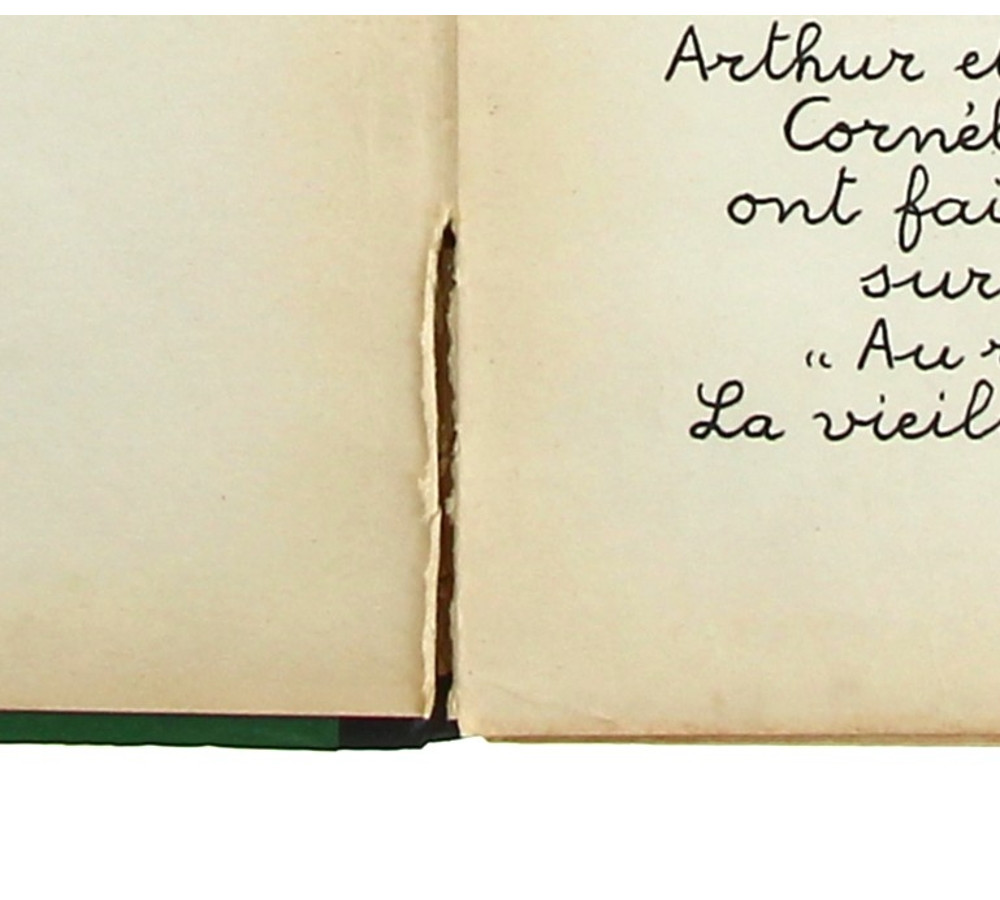 Arthur et
Cornél
ont fai
sur
« Au r
La vieil